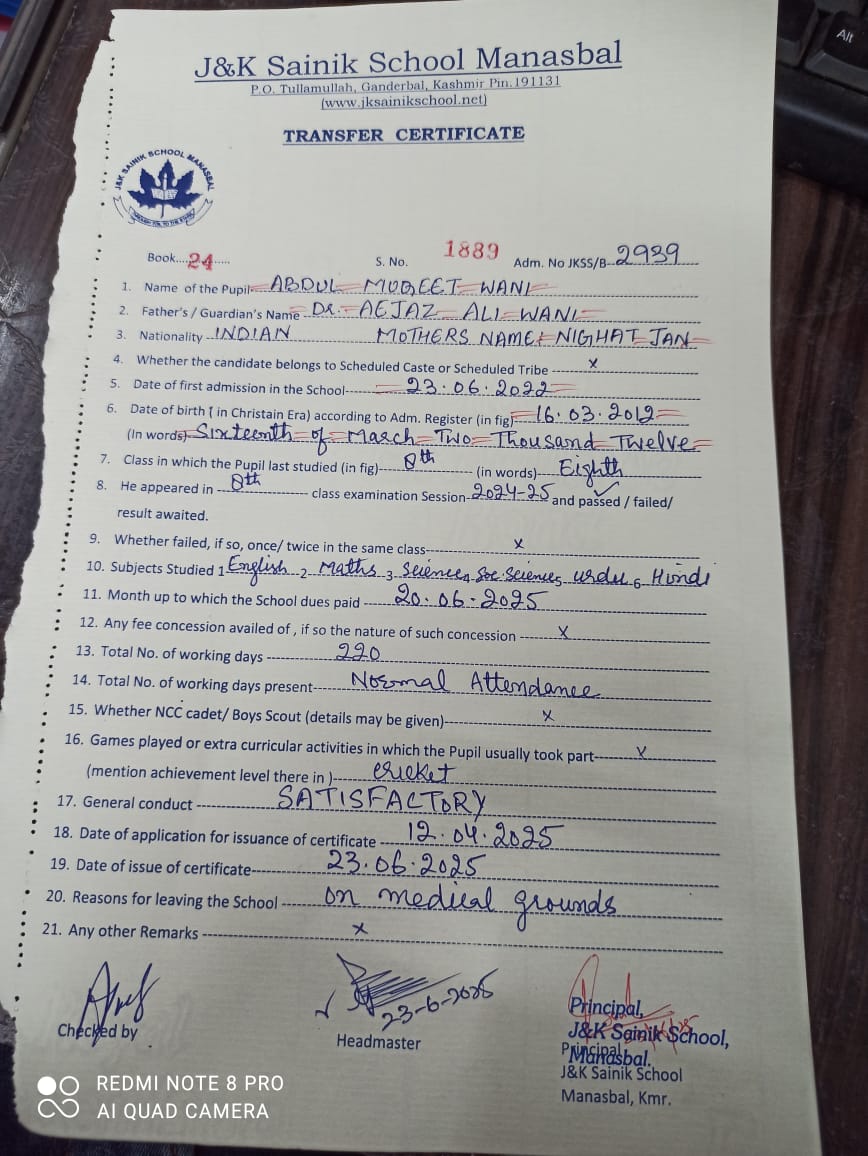 Alt
J&K Sainik School Manasbal
P.O. Tullamullah, Ganderbal, Kashmir Pin.191131
(www.jksainikschool.net)
TRANSFER CERTIFICATE
J&K SAINIK SCHOOL MANASBAL
Book....24..... S. No. 1889 Adm. No JKSS/B-2939
1. Name of the Pupil ABDUL MUQEET WANI
2. Father's / Guardian's Name Dr. AEJAZ ALI WANI
3. Nationality INDIAN MOTHERS NAME NIGHAT JAN
4. Whether the candidate belongs to Scheduled Caste or Scheduled Tribe x
5. Date of first admission in the School 23.06.2022
6. Date of birth ( in Christain Era) according to Adm. Register (in fig) 16.03.2012
(In words) Sixteenth of March Two Thousand Twelve
7. Class in which the Pupil last studied (in fig) 8th (in words) Eighth
8. He appeared in 8th class examination Session 2024-25 and passed / failed/
result awaited.
9. Whether failed, if so, once/ twice in the same class x
10. Subjects Studied 1 English 2 Maths 3 Science 4 Soc. Science 5 Urdu 6 Hindi
11. Month up to which the School dues paid 20.06.2025
12. Any fee concession availed of , if so the nature of such concession x
13. Total No. of working days 220
14. Total No. of working days present Normal Attendance
15. Whether NCC cadet/ Boys Scout (details may be given) x
16. Games played or extra curricular activities in which the Pupil usually took part x
(mention achievement level there in ) cricket
17. General conduct SATISFACTORY
18. Date of application for issuance of certificate 12.04.2025
19. Date of issue of certificate 23.06.2025
20. Reasons for leaving the School on medical grounds
21. Any other Remarks x
23-6-2025
Checked by
Headmaster
Principal,
J&K Sainik School,
Manasbal.
Principal
J&K Sainik School
Manasbal, Kmr.
REDMI NOTE 8 PRO
AI QUAD CAMERA